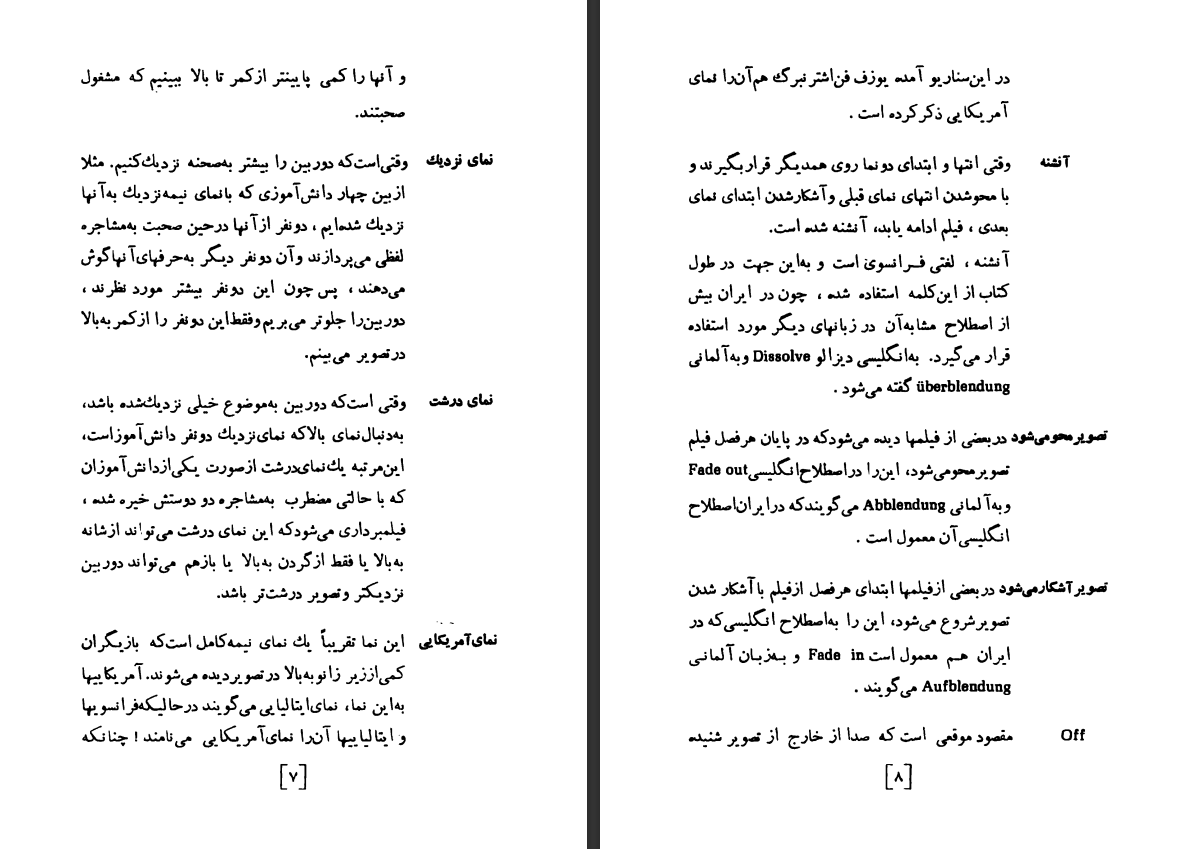 و آنها را کمی پایینتر از کمر تا بالا ببینیم که مشغول
صحبتند.
نمای نزدیك وقتی است که دوربین را بیشتر به‌صحنه نزدیك کنیم. مثلا
از بین چهار دانش‌آموزی که با نمای نیمه نزدیك به آنها
نزدیك شده‌ایم، دونفر از آنها درحین صحبت به‌مشاجره
لفظی می‌پردازند و آن دو نفر دیگر به حرفهای آنها گوش
می‌دهند، پس چون این دونفر بیشتر مورد نظرند،
دوربین را جلوتر می‌بریم و فقط این دونفر را از کمر به بالا
در تصویر می‌بینم.
نمای درشت وقتی است که دوربین به‌موضوع خیلی نزدیك شده باشد،
به‌دنبال نمای بالا که نمای نزدیك دونفر دانش‌آموز است،
این مرتبه یك نمای درشت از صورت یکی از دانش آموزان
که با حالتی مضطرب به‌مشاجره دو دوستش خیره شده،
فیلمبرداری می‌شود که این نمای درشت می‌تواند از شانه
به بالا یا فقط از گردن به بالا یا بازهم می‌تواند دوربین
نزدیکتر و تصویر درشت‌تر باشد.
نمای آمریکایی این نما تقریباً یك نمای نیمه کامل است که بازیگران
کمی از زیر زانو به بالا در تصویر دیده می‌شوند. آمریکاییها
به این نما، نمای ایتالیایی می‌گویند در حالیکه فرانسویها
و ایتالیاییها آن را نمای آمریکایی می‌نامند! چنانکه
[۷]
در این سناریو آمده یوزف فن اشترنبرگ هم آن را نمای
آمریکایی ذکر کرده است.
آنشنه وقتی انتها و ابتدای دونما روی همدیگر قرار بگیرند و
با محوشدن انتهای نمای قبلی و آشکارشدن ابتدای نمای
بعدی، فیلم ادامه یابد، آنشنه شده است.
آنشنه، لغتی فـرانسوی است و به‌این جهت در طول
کتاب از این کلمه استفاده شده، چون در ایران بیش
از اصطلاح مشابه آن در زبانهای دیگر مورد استفاده
قرار می‌گیرد. به انگلیسی دیزالو Dissolve و به آلمانی
überblendung گفته می‌شود.
تصویر محو می‌شود در بعضی از فیلمها دیده می‌شود که در پایان هرفصل فیلم
تصویر محو می‌شود، این را در اصطلاح انگلیسی Fade out
و به آلمانی Abblendung می‌گویند که در ایران اصطلاح
انگلیسی آن معمول است.
تصویر آشکار می‌شود در بعضی از فیلمها ابتدای هرفصل از فیلم با آشکار شدن
تصویر شروع می‌شود، این را به‌اصطلاح انگلیسی که در
ایران هـم معمول است Fade in و بـه‌زبـان آلمانـی
Aufblendung می‌گویند.
Off مقصود موقعی است که صدا از خارج از تصویر شنیده
[۸]